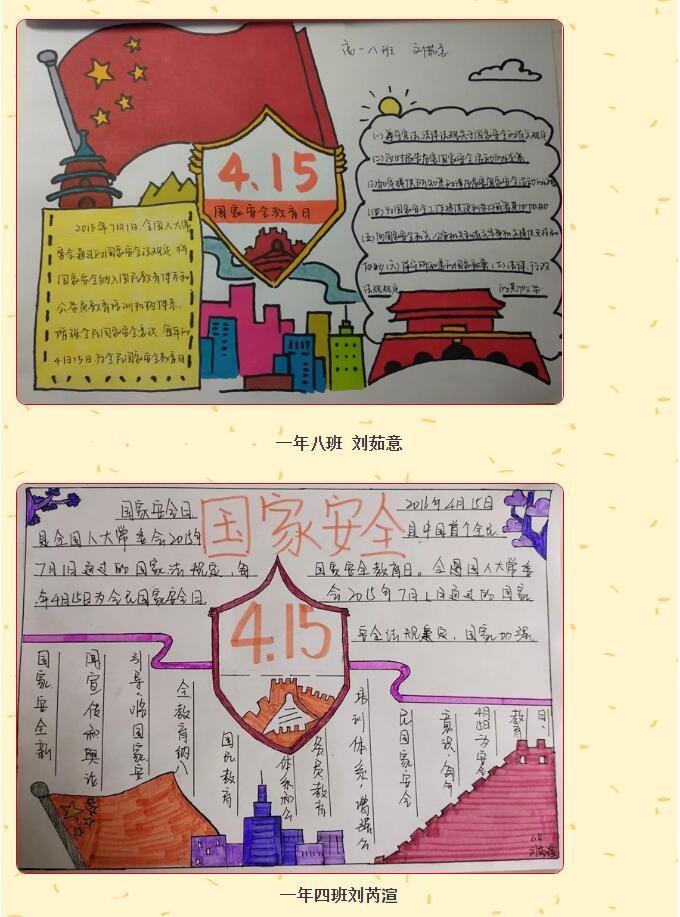 高一八班 刘茹意
4.15
国家安全教育日
2015年7月1日,全国人大常
委会通过的国家安全法规定 将
国家安全纳入国民教育体系和
公务员教育培训机构体系.
增强全民国家安全意识 每年的
4月15日为全民国家安全教育日
(一)遵守宪法、法律法规关于国家安全的有关规定
(二)及时报告危害国家安全活动的线索
法规规定
的其他义务
一年八班 刘茹意
国家安全
国家安全日
是全国人大常委会2015年
7月1日通过的国家法规定,每
年4月15日为全民国家安全日
2016年4月15日
是中国首个全民
国家安全教育日。全国人大常委
会2015年7月1日通过的国家
安全法规定,国家加强
4.15
国家安全新
闻宣传和舆论
引导,将国家安
全教育纳入
国民教育
体系和公
务员教育
培训体系,增强全
民国家安全
意识,每年
4月15日为安全
教育
日.
一年四班刘芮渲